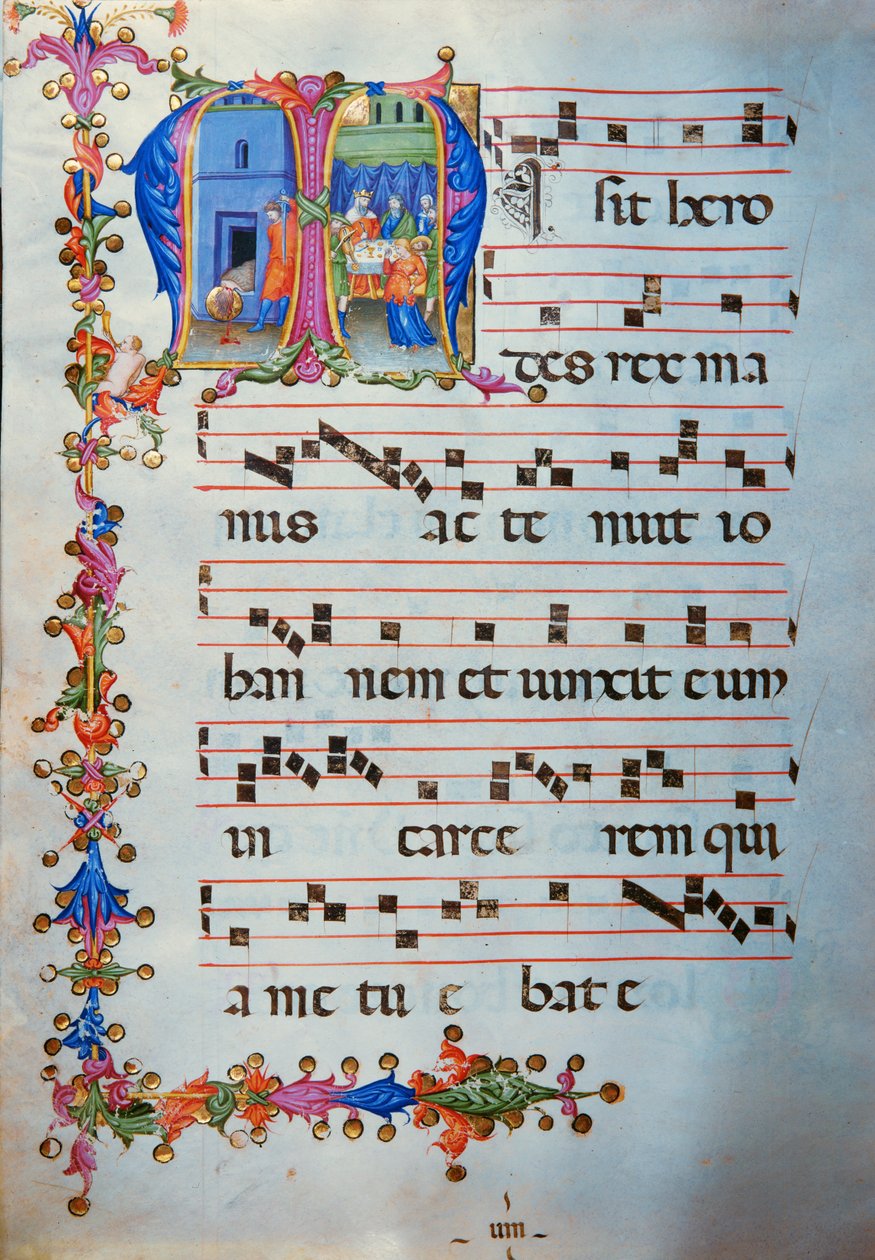 MI sit hero
des rex ma
nus ac te nuit io
han nem et uinxit eum
in carce rem qui
a me tu e bat e
um